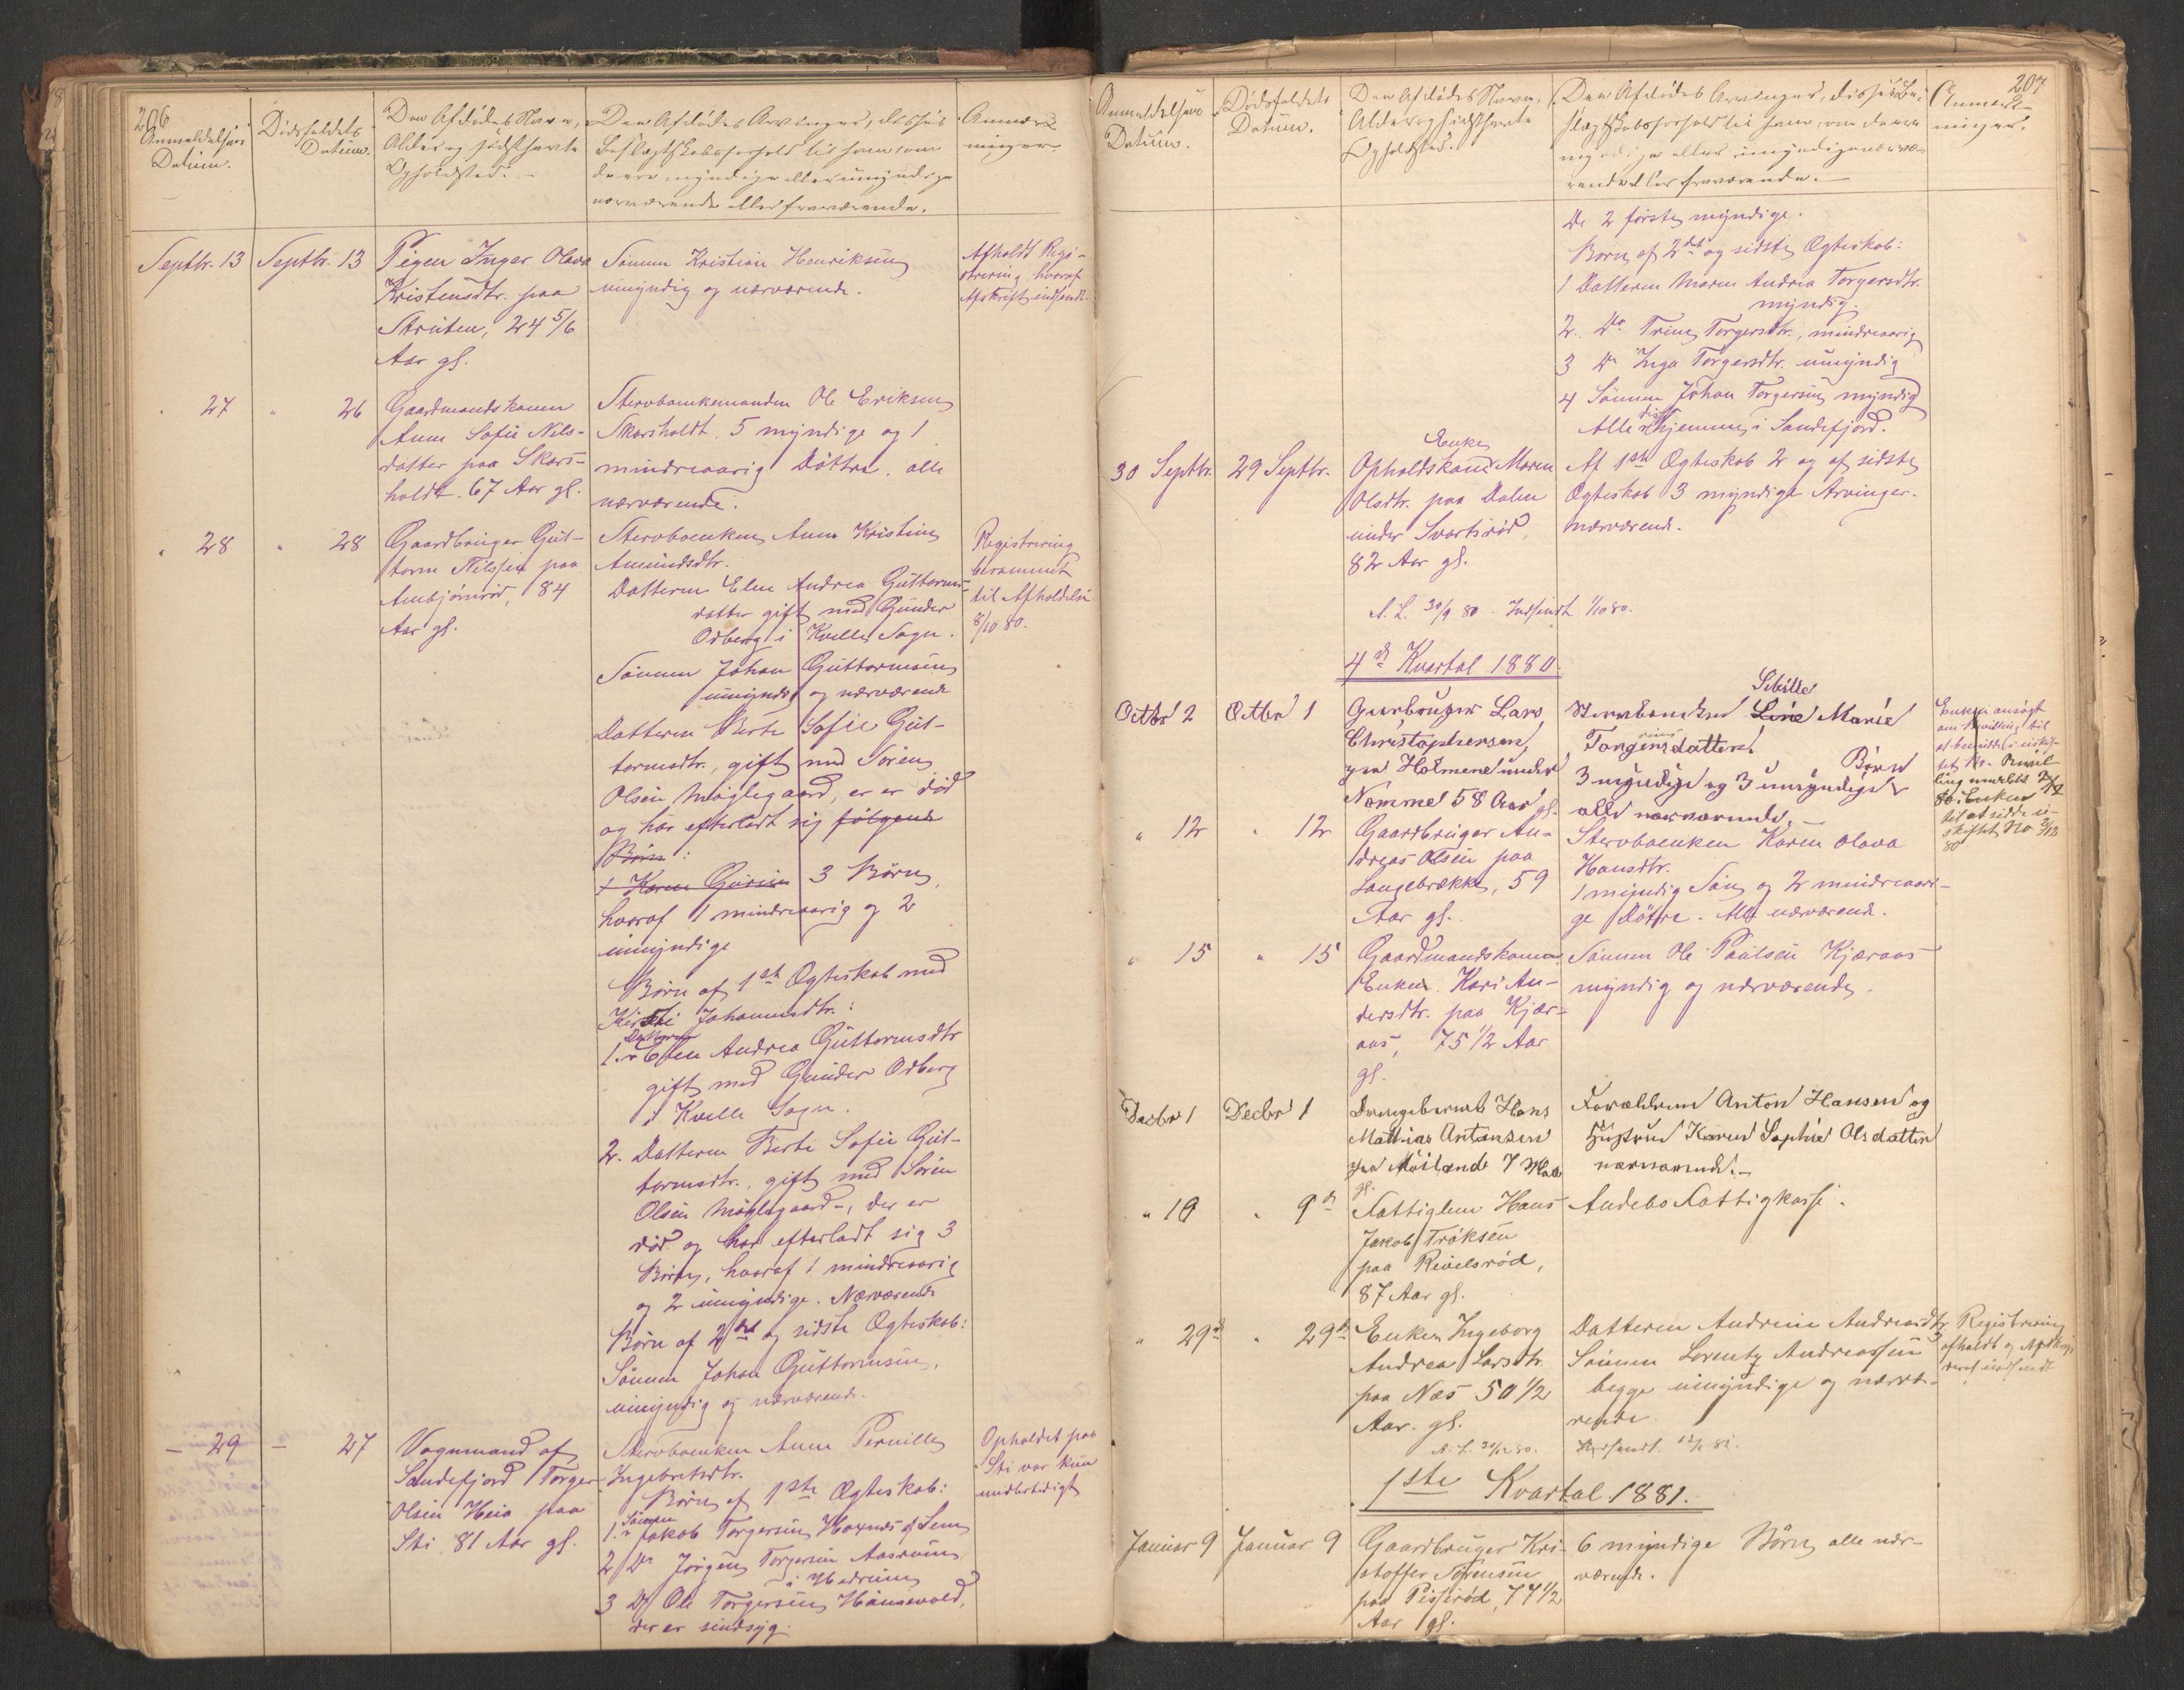 206
Anmeldelsens
Datum.
Dødsfaldets
Datum.
Den Afdødes Navn,
Alder og sidsthavte
Opholdsted. -
Den Afdødes Arvinger, disses
Beslægtskabsforhold til ham om
de ere myndige eller umyndige
nærværende eller fraværende.
Anmærk-
ninger
Septbr. 13
Septbr. 13
Pigen Inger Olava
Kristensdtr. paa
Struten, 24 5/6
Aar gl.
Sønnen Kristian Henriksen
umyndig og nærværende.
Afholdt Regi-
strering, hvoraf
Afskrift indsendt.
" 27
" 26
Gaardmandskonen
Anne Sofie Nils-
datter paa Skars-
holdt. 67 Aar gl.
Stervboenkemanden Ole Eriksen
Skarsholdt, 5 myndige og 1
mindreaarig Døttre. alle
nærværende.
" 28
" 28
Gaardbruger Gut-
torm Nilssen paa
Ambjörnröd, 84
Aar gl.
Stervboenken Anne Kristine
Amundsdtr.
Datteren Elen Andrea Guttorms-
datter gift med Gunder
Odberg i Kvelle Sogn.
Sønnen Johan Guttormsen
umyndig og nærværende
Datteren Berte Sofie Gut-
tormsdtr., gift med Søren
Olsen Møglegaard, er er død
og har efterladt sig følgende
Børn:
1 Karen 3 Børn,
hvoraf 1 mindreaarig og 2
umyndige
Registrering
berammet
til Afholdelse
8/10 80.
Børn af 1st Ægteskab med
Kirsti Johannesdtr.:
Datteren
1. Elen Andrea Guttormsdtr
gift med Gunder Odberg
i Kvelle Sogn.
2. Datteren Berte Sofie Gut-
tormsdtr., gift med Søren
Olsen Møglegaard, der er
død og har efterladt sig 3
Børn, hvoraf 1 mindreaarig
og 2 umyndige. Nærværende
Børn af 2det og sidste Ægteskab:
Sønnen Johan Guttormsen,
umyndig og nærværende.
- 29
- 27
Vognmand af
Sandefjord Torger
Olsen Heia paa
Sti 81 Aar gl.
Stervboenken Anne Pernille
Ingebretsdtr.
Børn af 1ste Ægteskab:
Sønnen
1. Jakob Torgersen Haxnes af Sem
2 Do Jørgen Torgersen Aasrum
i Hedrum
3 Do Ole Torgersen Haugevold,
der er sindsyg.
Opholdet paa
Sti var kun
midlertidigt
207
Anmeldelsens
Datum.
Dødsfaldets
Datum.
Den Afdødes Navn,
Alder og sidsthavte
Opholdsted.
Den Afdødes Arvinger, disses Be-
slægtskabsforhold til ham om de ere
myndige eller umyndige nærvæ-
rende eller fraværende. -
Anmærk-
ninger.
De 2 første myndige.
Børn af 2det og sidste Ægteskab:
1 Datteren Maren Andrea Torgersdtr.
myndig.
2. Do Trine Torgersdtr., mindreaarig
3 Do Inga Torgersdtr. umyndig
4 Sønnen Johan Torgersen myndig
Alle hjemme i Sandefjord.
30 Septbr.
29 Septbr.
Enke
Opholdskone Maren
Olsdtr. paa Dalen
under Svartsrød,
82 Aar gl.
Af 1ste Ægteskab 2 og af sidste
Ægteskab 3 myndige Arvinger.
nærværende.
A. L. 30/9 80. Indsendt 1/10 80.
4de Kvartal 1880.
Octbr 2
Octbr 1
Gaarbruger Lars
Christophersen
paa Holmene under
Nommel 58 Aar gl.
Sibille
Stervboenken Line Marie
Torgersdatter.
Børn
3 myndige og 3 umyndige
alle nærværende.
Enken ansøgt
om Bevilling til
at hensidde i uskif-
tet Bo. Bevil-
ling meddelt
til at sidde u-
skiftet Bo
80
" 12
" 12
Gaardbruger An-
dreas Olsen paa
Langebrække, 59
Aar gl.
Stervboenken Karen Olava
Hansdtr.
1 myndig Søn og 2 mindreaari-
ge Døttre. Alle nærværende.
" 15
" 15
Gaardmandskone
Enken Kari An-
dersdtr. paa Kjær-
aas, 75 1/2 Aar
gl.
Sønnen Ole Paulsen Kjæraas
myndig og nærværende.
Decbr 1
Decbr 1
Drengebarnet Hans
Mathias Antonsen
paa Møiland 7 Mdr
gl.
Forældrene Anton Hansen og
Hustru Karen Sophie Olsdatter
nærværende. -
" 10
" 9de
Fattiglem Hans
Jakob Tröksen
paa Reveelsröd,
87 Aar gl.
Andebo Fattigkasse.
" 29de
" 29de
Enken Ingeborg
Andrea Larsdtr.
paa Næs 50 1/2
Aar. gl.
Datteren Andrine Andreasdtr
Sønnen Lorentz Andreassen
begge umyndige og nærvæ-
rende.
Registrering
afholdt og Afskrift
deraf indsendt
A. L. 31/12 80. Indsendt.
1ste Kvartal 1881.
Januar 9
Januar 9
Gaardbruger Kri-
stoffer Sørensen
paa Pisserød, 74 1/2
Aar gl.
6 myndige Børn, alle nær-
værende.